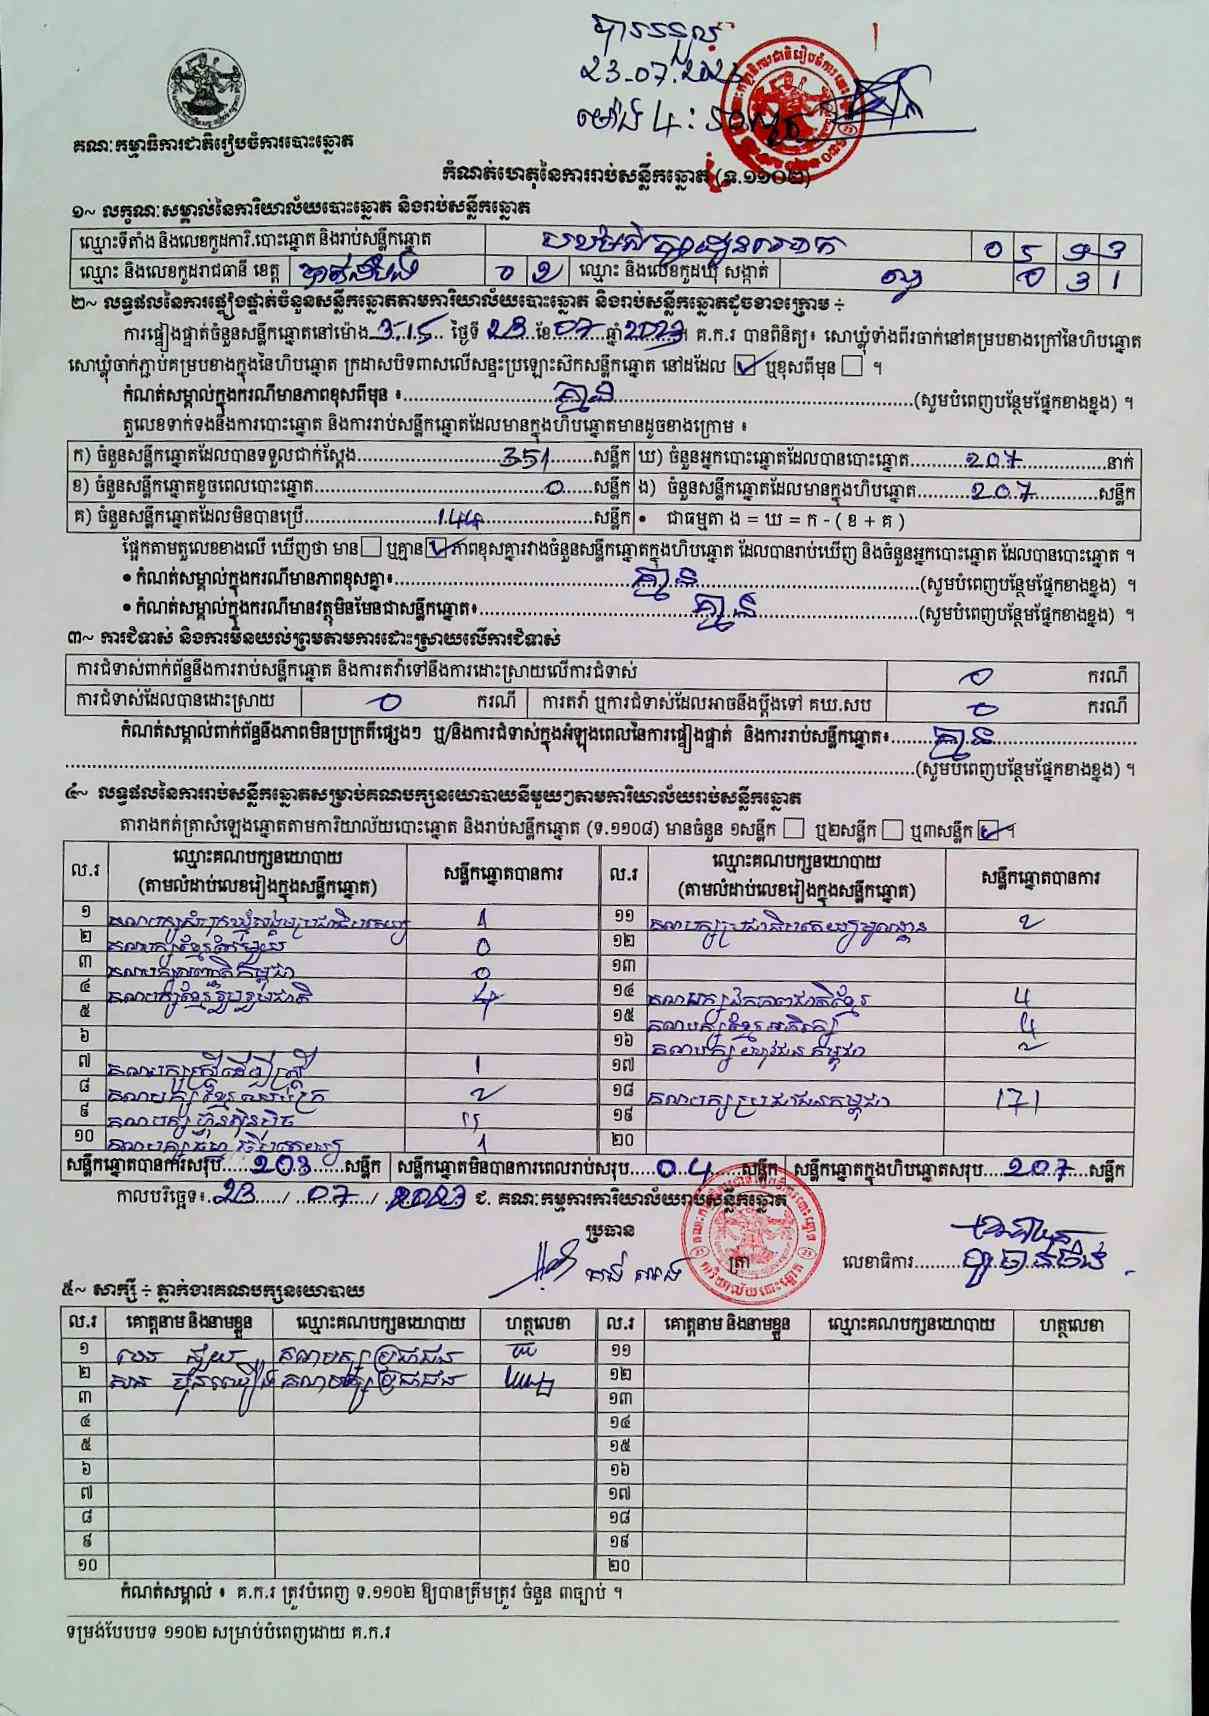 បានទទួល
23-07-2023
ម៉ោង 4:
គណៈកម្មាធិការជាតិរៀបចំការបោះឆ្នោត
កំណត់ហេតុនៃការរាប់សន្លឹកឆ្នោត (ទ.១១០២)
១~ លក្ខណៈសម្គាល់នៃការិយាល័យបោះឆ្នោត និងរាប់សន្លឹកឆ្នោត
ឈ្មោះទីតាំង និងលេខកូដការិ.បោះឆ្នោត និងរាប់សន្លឹកឆ្នោត
ឈ្មោះ និងលេខកូដរាជធានី ខេត្ត បាត់ដំបង 0 2 ឈ្មោះ និងលេខកូដឃុំ សង្កាត់ 0 3 1
២~ លទ្ធផលនៃការផ្ទៀងផ្ទាត់ចំនួនសន្លឹកឆ្នោតតាមការិយាល័យបោះឆ្នោត និងរាប់សន្លឹកឆ្នោតដូចខាងក្រោម ÷
ការផ្ទៀងផ្ទាត់ចំនួនសន្លឹកឆ្នោតនៅម៉ោង 3:15 ថ្ងៃទី 23 ខែ 07 ឆ្នាំ 2023។ គ.ក.រ បានពិនិត្យ៖ សោឃ្លុំទាំងពីរចាក់នៅគម្របខាងក្រៅនៃហិបឆ្នោត
សោឃ្លុំចាក់ភ្ជាប់គម្របខាងក្នុងនៃហិបឆ្នោត ក្រដាសបិទពាសលើសន្ទះប្រឡោះស៊កសន្លឹកឆ្នោត នៅដដែល ☑ ឬខុសពីមុន ☐ ។
កំណត់សម្គាល់ក្នុងករណីមានភាពខុសពីមុន ៖ គ្មាន (សូមបំពេញបន្ថែមផ្នែកខាងខ្នង) ។
តួលេខទាក់ទងនឹងការបោះឆ្នោត និងការរាប់សន្លឹកឆ្នោតដែលមានក្នុងហិបឆ្នោតមានដូចខាងក្រោម ៖
ក) ចំនួនសន្លឹកឆ្នោតដែលបានទទួលជាក់ស្តែង 351 សន្លឹក ឃ) ចំនួនអ្នកបោះឆ្នោតដែលបានបោះឆ្នោត 207 នាក់
ខ) ចំនួនសន្លឹកឆ្នោតខូចពេលបោះឆ្នោត 0 សន្លឹក ង) ចំនួនសន្លឹកឆ្នោតដែលមានក្នុងហិបឆ្នោត 207 សន្លឹក
គ) ចំនួនសន្លឹកឆ្នោតដែលមិនបានប្រើ 144 សន្លឹក • ជាធម្មតា ង = ឃ = ក - ( ខ + គ )
ផ្អែកតាមតួលេខខាងលើ ឃើញថា មាន ☐ ឬគ្មាន ☑ ភាពខុសគ្នារវាងចំនួនសន្លឹកឆ្នោតក្នុងហិបឆ្នោត ដែលបានរាប់ឃើញ និងចំនួនអ្នកបោះឆ្នោត ដែលបានបោះឆ្នោត ។
• កំណត់សម្គាល់ក្នុងករណីមានភាពខុសគ្នា៖ គ្មាន (សូមបំពេញបន្ថែមផ្នែកខាងខ្នង) ។
• កំណត់សម្គាល់ក្នុងករណីមានវត្ថុមិនមែនជាសន្លឹកឆ្នោត៖ គ្មាន (សូមបំពេញបន្ថែមផ្នែកខាងខ្នង) ។
៣~ ការជំទាស់ និងការមិនយល់ព្រមតាមការដោះស្រាយលើការជំទាស់
ការជំទាស់ពាក់ព័ន្ធនឹងការរាប់សន្លឹកឆ្នោត និងការតវ៉ាទៅនឹងការដោះស្រាយលើការជំទាស់ 0 ករណី
ការជំទាស់ដែលបានដោះស្រាយ 0 ករណី ការតវ៉ា ឬការជំទាស់ដែលអាចនឹងប្តឹងទៅ គឃ.សប 0 ករណី
កំណត់សម្គាល់ពាក់ព័ន្ធនឹងភាពមិនប្រក្រតីផ្សេងៗ ឬ/និងការជំទាស់ក្នុងអំឡុងពេលនៃការផ្ទៀងផ្ទាត់ និងការរាប់សន្លឹកឆ្នោត៖ គ្មាន
(សូមបំពេញបន្ថែមផ្នែកខាងខ្នង) ។
៤~ លទ្ធផលនៃការរាប់សន្លឹកឆ្នោតសម្រាប់គណបក្សនយោបាយនីមួយៗតាមការិយាល័យរាប់សន្លឹកឆ្នោត
តារាងកត់ត្រាសំឡេងឆ្នោតតាមការិយាល័យបោះឆ្នោត និងរាប់សន្លឹកឆ្នោត (ទ.១១០៨) មានចំនួន ១សន្លឹក ☐ ឬ២សន្លឹក ☐ ឬ៣សន្លឹក ☑ ។
ល.រ ឈ្មោះគណបក្សនយោបាយ (តាមលំដាប់លេខរៀងក្នុងសន្លឹកឆ្នោត) សន្លឹកឆ្នោតបានការ ល.រ ឈ្មោះគណបក្សនយោបាយ (តាមលំដាប់លេខរៀងក្នុងសន្លឹកឆ្នោត) សន្លឹកឆ្នោតបានការ
១ គណបក្សសំបុកឃ្មុំសង្គមប្រជាធិបតេយ្យ 1 ១១ គណបក្សប្រជាធិបតេយ្យមូលដ្ឋាន 2
២ គណបក្សខ្មែរតែមួយ 0 ១២
៣ គណបក្សរបោះជាតិកម្ពុជា 0 ១៣
៤ គណបក្សខ្មែររួបរួមជាតិ 4 ១៤ គណបក្សឯកភាពជាតិខ្មែរ 4
៥ ១៥ គណបក្សខ្មែរអភិរក្ស 4
៦ ១៦ គណបក្សយុវជនកម្ពុជា 2
៧ គណបក្សស្ត្រីដើម្បីស្ត្រី 1 ១៧
៨ គណបក្សខ្មែរឈប់ក្រ 2 ១៨ គណបក្សប្រជាជនកម្ពុជា 171
៩ គណបក្សហ្វ៊ុនស៊ិនប៉ិច 11 ១៩
១០ គណបក្សធម្មាធិបតេយ្យ 1 ២០
សន្លឹកឆ្នោតបានការសរុប 203 សន្លឹក សន្លឹកឆ្នោតមិនបានការពេលរាប់សរុប 04 សន្លឹក សន្លឹកឆ្នោតក្នុងហិបឆ្នោតសរុប 207 សន្លឹក
កាលបរិច្ឆេទ៖ 23 / 07 / 2023 ជ. គណៈកម្មការការិយាល័យរាប់សន្លឹកឆ្នោត
ប្រធាន
ត្រា លេខាធិការ
៥~ សាក្សី ÷ ភ្នាក់ងារគណបក្សនយោបាយ
ល.រ គោត្តនាម និងនាមខ្លួន ឈ្មោះគណបក្សនយោបាយ ហត្ថលេខា ល.រ គោត្តនាម និងនាមខ្លួន ឈ្មោះគណបក្សនយោបាយ ហត្ថលេខា
១ គណបក្សប្រជាជន ១១
២ គណបក្សប្រជាជន ១២
៣ ១៣
៤ ១៤
៥ ១៥
៦ ១៦
៧ ១៧
៨ ១៨
៩ ១៩
១០ ២០
កំណត់សម្គាល់ ៖ គ.ក.រ ត្រូវបំពេញ ទ.១១០២ ឱ្យបានត្រឹមត្រូវ ចំនួន ៣ច្បាប់ ។
ទម្រង់បែបបទ ១១០២ សម្រាប់បំពេញដោយ គ.ក.រ